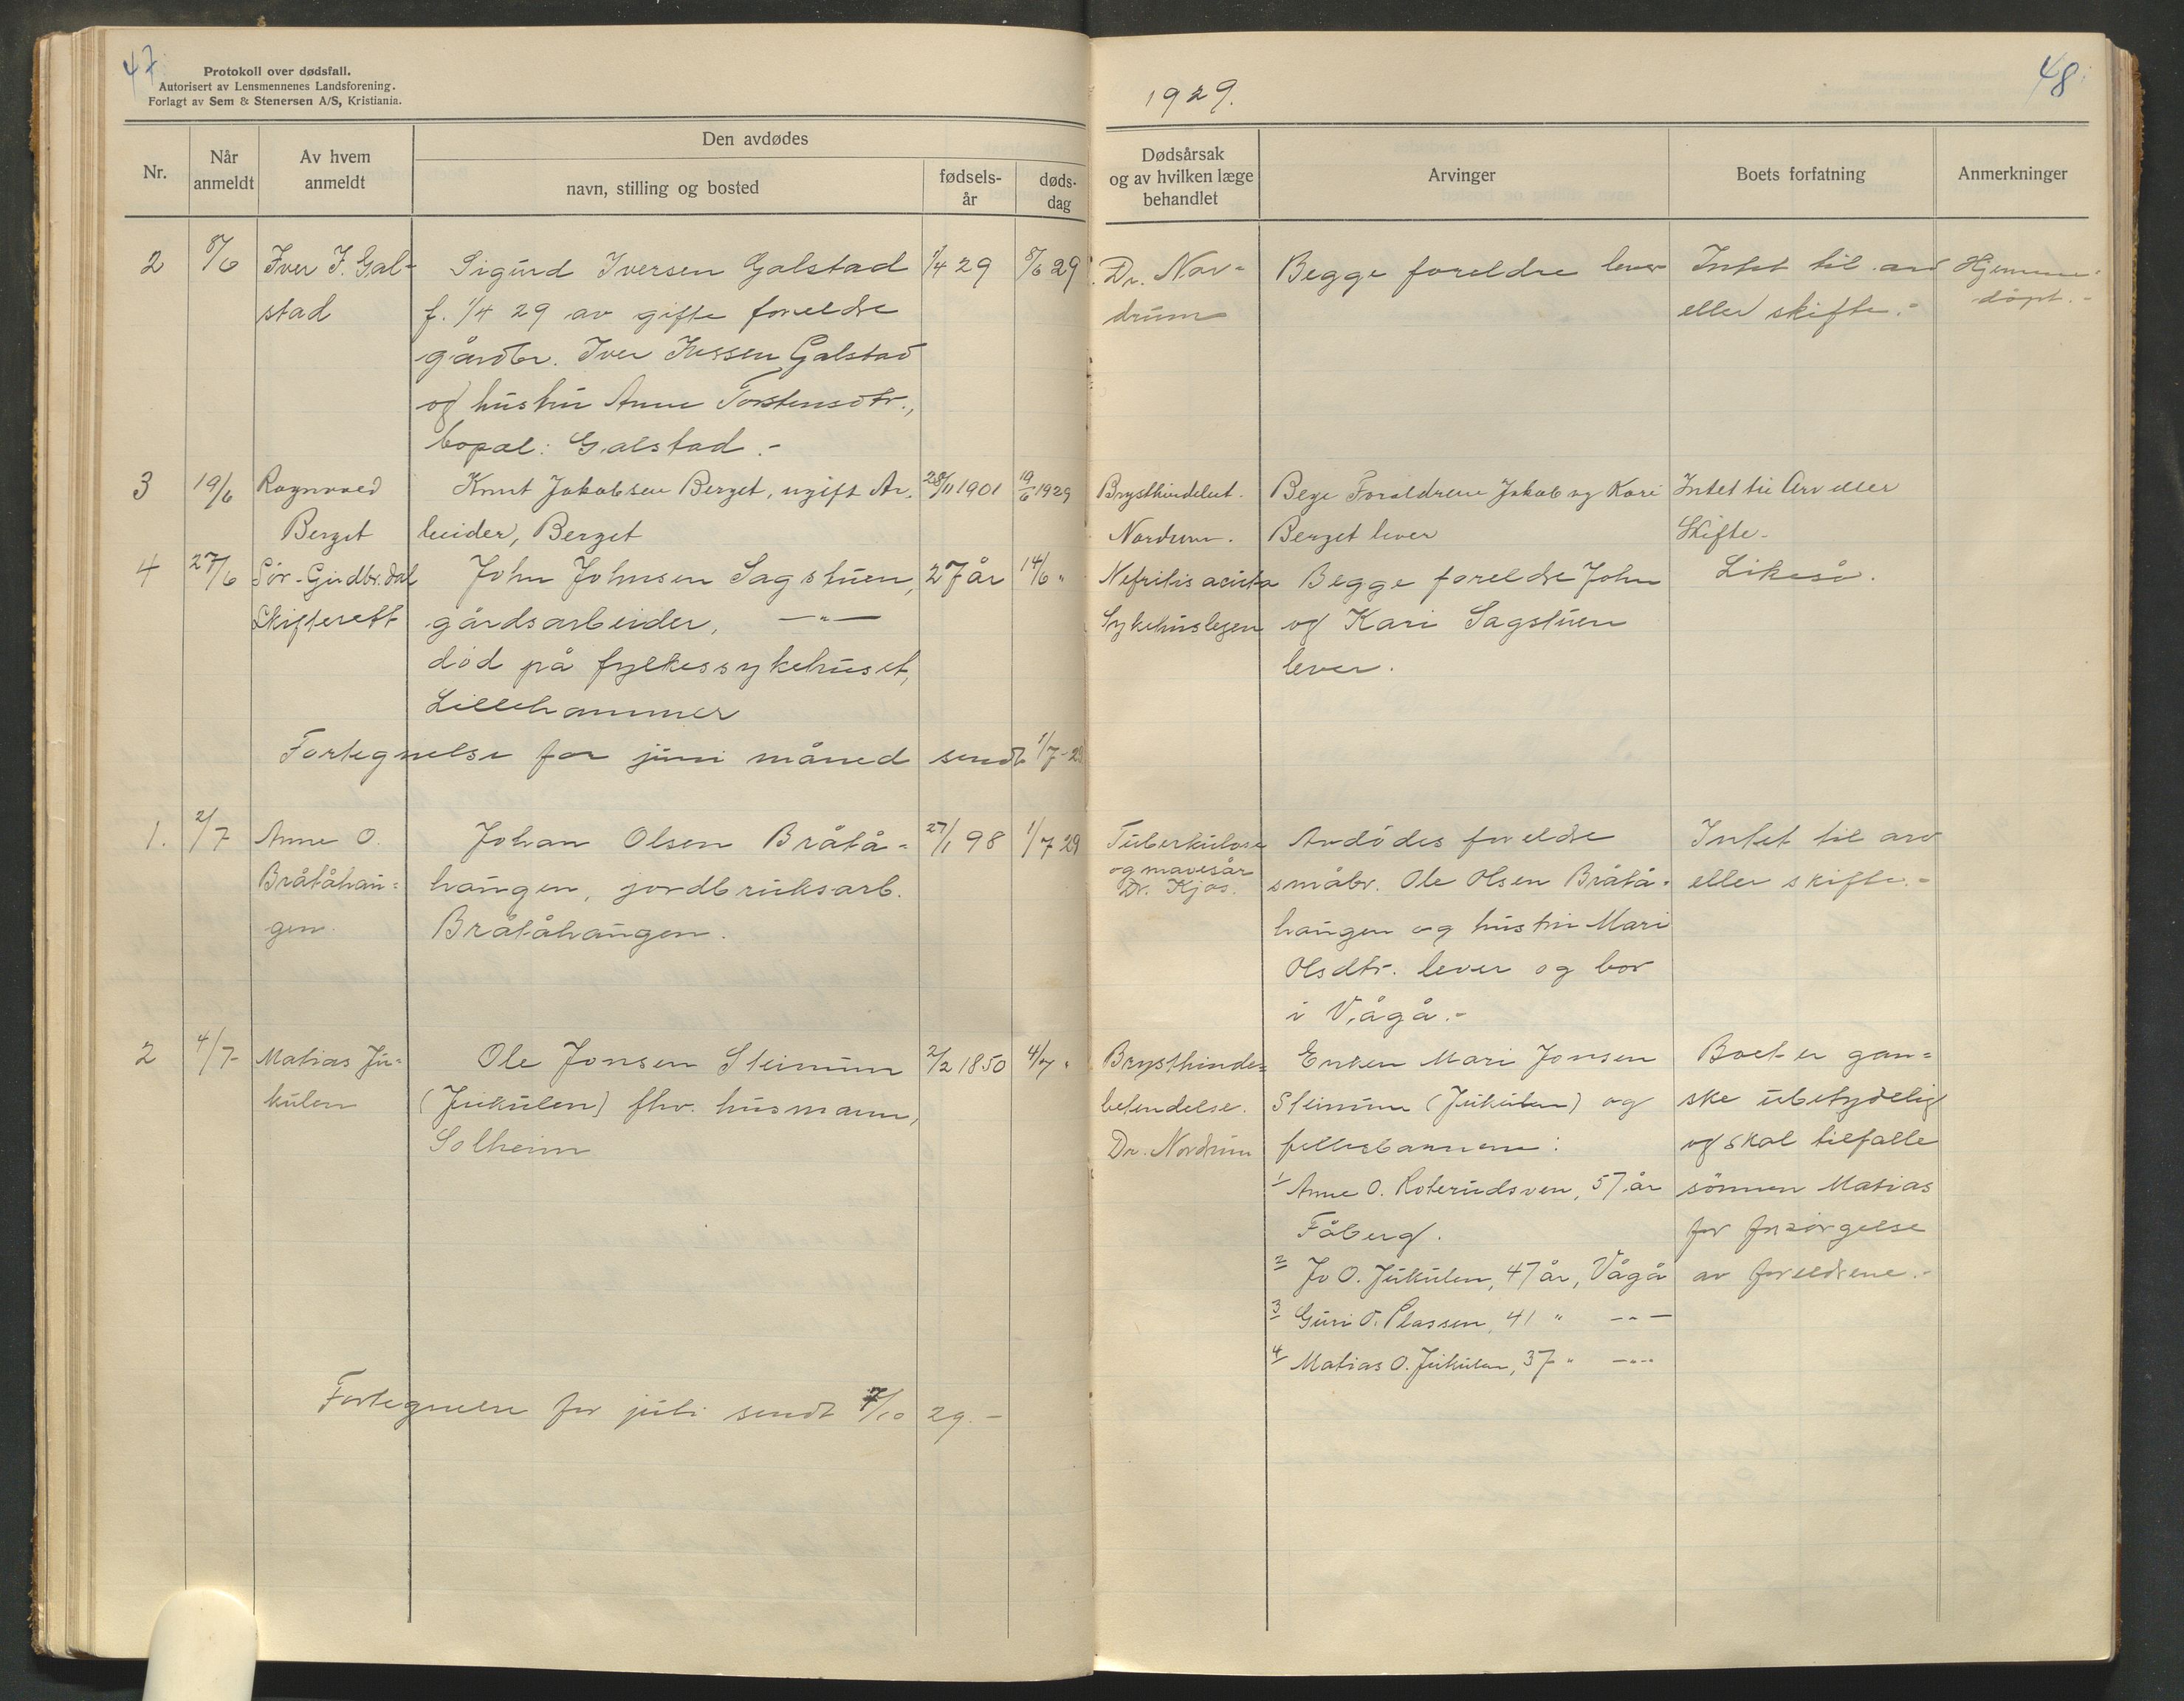 47
Protokoll over dødsfall.
Autorisert av Lensmennenes Landsforening.
Forlagt av Sem & Stenersen A/S, Kristiania.
Nr.
Når anmeldt
Av hvem anmeldt
Den avdødes
navn, stilling og bosted
fødsels-år
døds-dag
2 8/6 Iver I. Gal- Sigurd Iversen Galstad 1/4 29 8/6 29
stad f. 1/4 29 av gifte foreldre
gårdbr. Iver Galstad
og hustru Anne Torstensdtr.,
bopæl: Galstad.-
3 19/6 Ragnvald Knut Jakobsen Berget, ugift Ar- 28/11 1901 19/6 1929
Berget beider, Berget
4 27/6 Sør-Gudbr.dal John Johnsen Sagstuen, 27 år 14/6 "
Skifterett gårdsarbeider, —"—
død på fylkessykehuset,
Lillehammer
Fortegnelse for juni måned sendt 1/7-29
1. 2/7 Anne O. Johan Olsen Bråtå- 27/1 98 1/7 29
Bråtåhau- haugen, jordbruksarb.
gen. Bråtåhaugen.
2 4/7- Matias Ju- Ole Jonsen Steinum 2/2 1850 4/7 "
kulen (Jukulen) fhv. husmann,
Solheim
Fortegnelse for juli sendt 7/10 29.-
1929.
48
Dødsårsak og av hvilken læge behandlet
Arvinger
Boets forfatning
Anmerkninger
Dr. Nor- Begge foreldre lever Intet til arv Hjemme-
drum eller skifte.- døpt.-
Brysthindebet. Bege Foreldrene Jakob og Kari Intet til Arv eller
Nordrum. Berget lever Skifte-
Nefritis acuta Begge foreldre John Likeså.
Sykehuslegen og Kari Sagstuen
lever.
Tuberkulose Avdødes foreldre Intet til arv
og mavesår småbr. Ole Olsen Bråtå- eller skifte.-
Dr. Kjos.
haugen og hustru Mari
Olsdtr. lever og bor
i Vågå.-
Brysthinde- Enken Mari Jonsen Boet er gan-
betendelse. Steinum (Jukulen) og ske ubetydelig
Dr. Nordrum fellesbarnene: og skal tilfalle
1/ Anne O. Roterudsven, 57 år sønnen Matias
Fåberg. for forsørgelse
2 Jo O. Jukulen, 47 år, Vågå av foreldrene.-
3 Guri O. Plassen, 41 " -"-
4/ Matias O. Jukulen, 37 " -"-